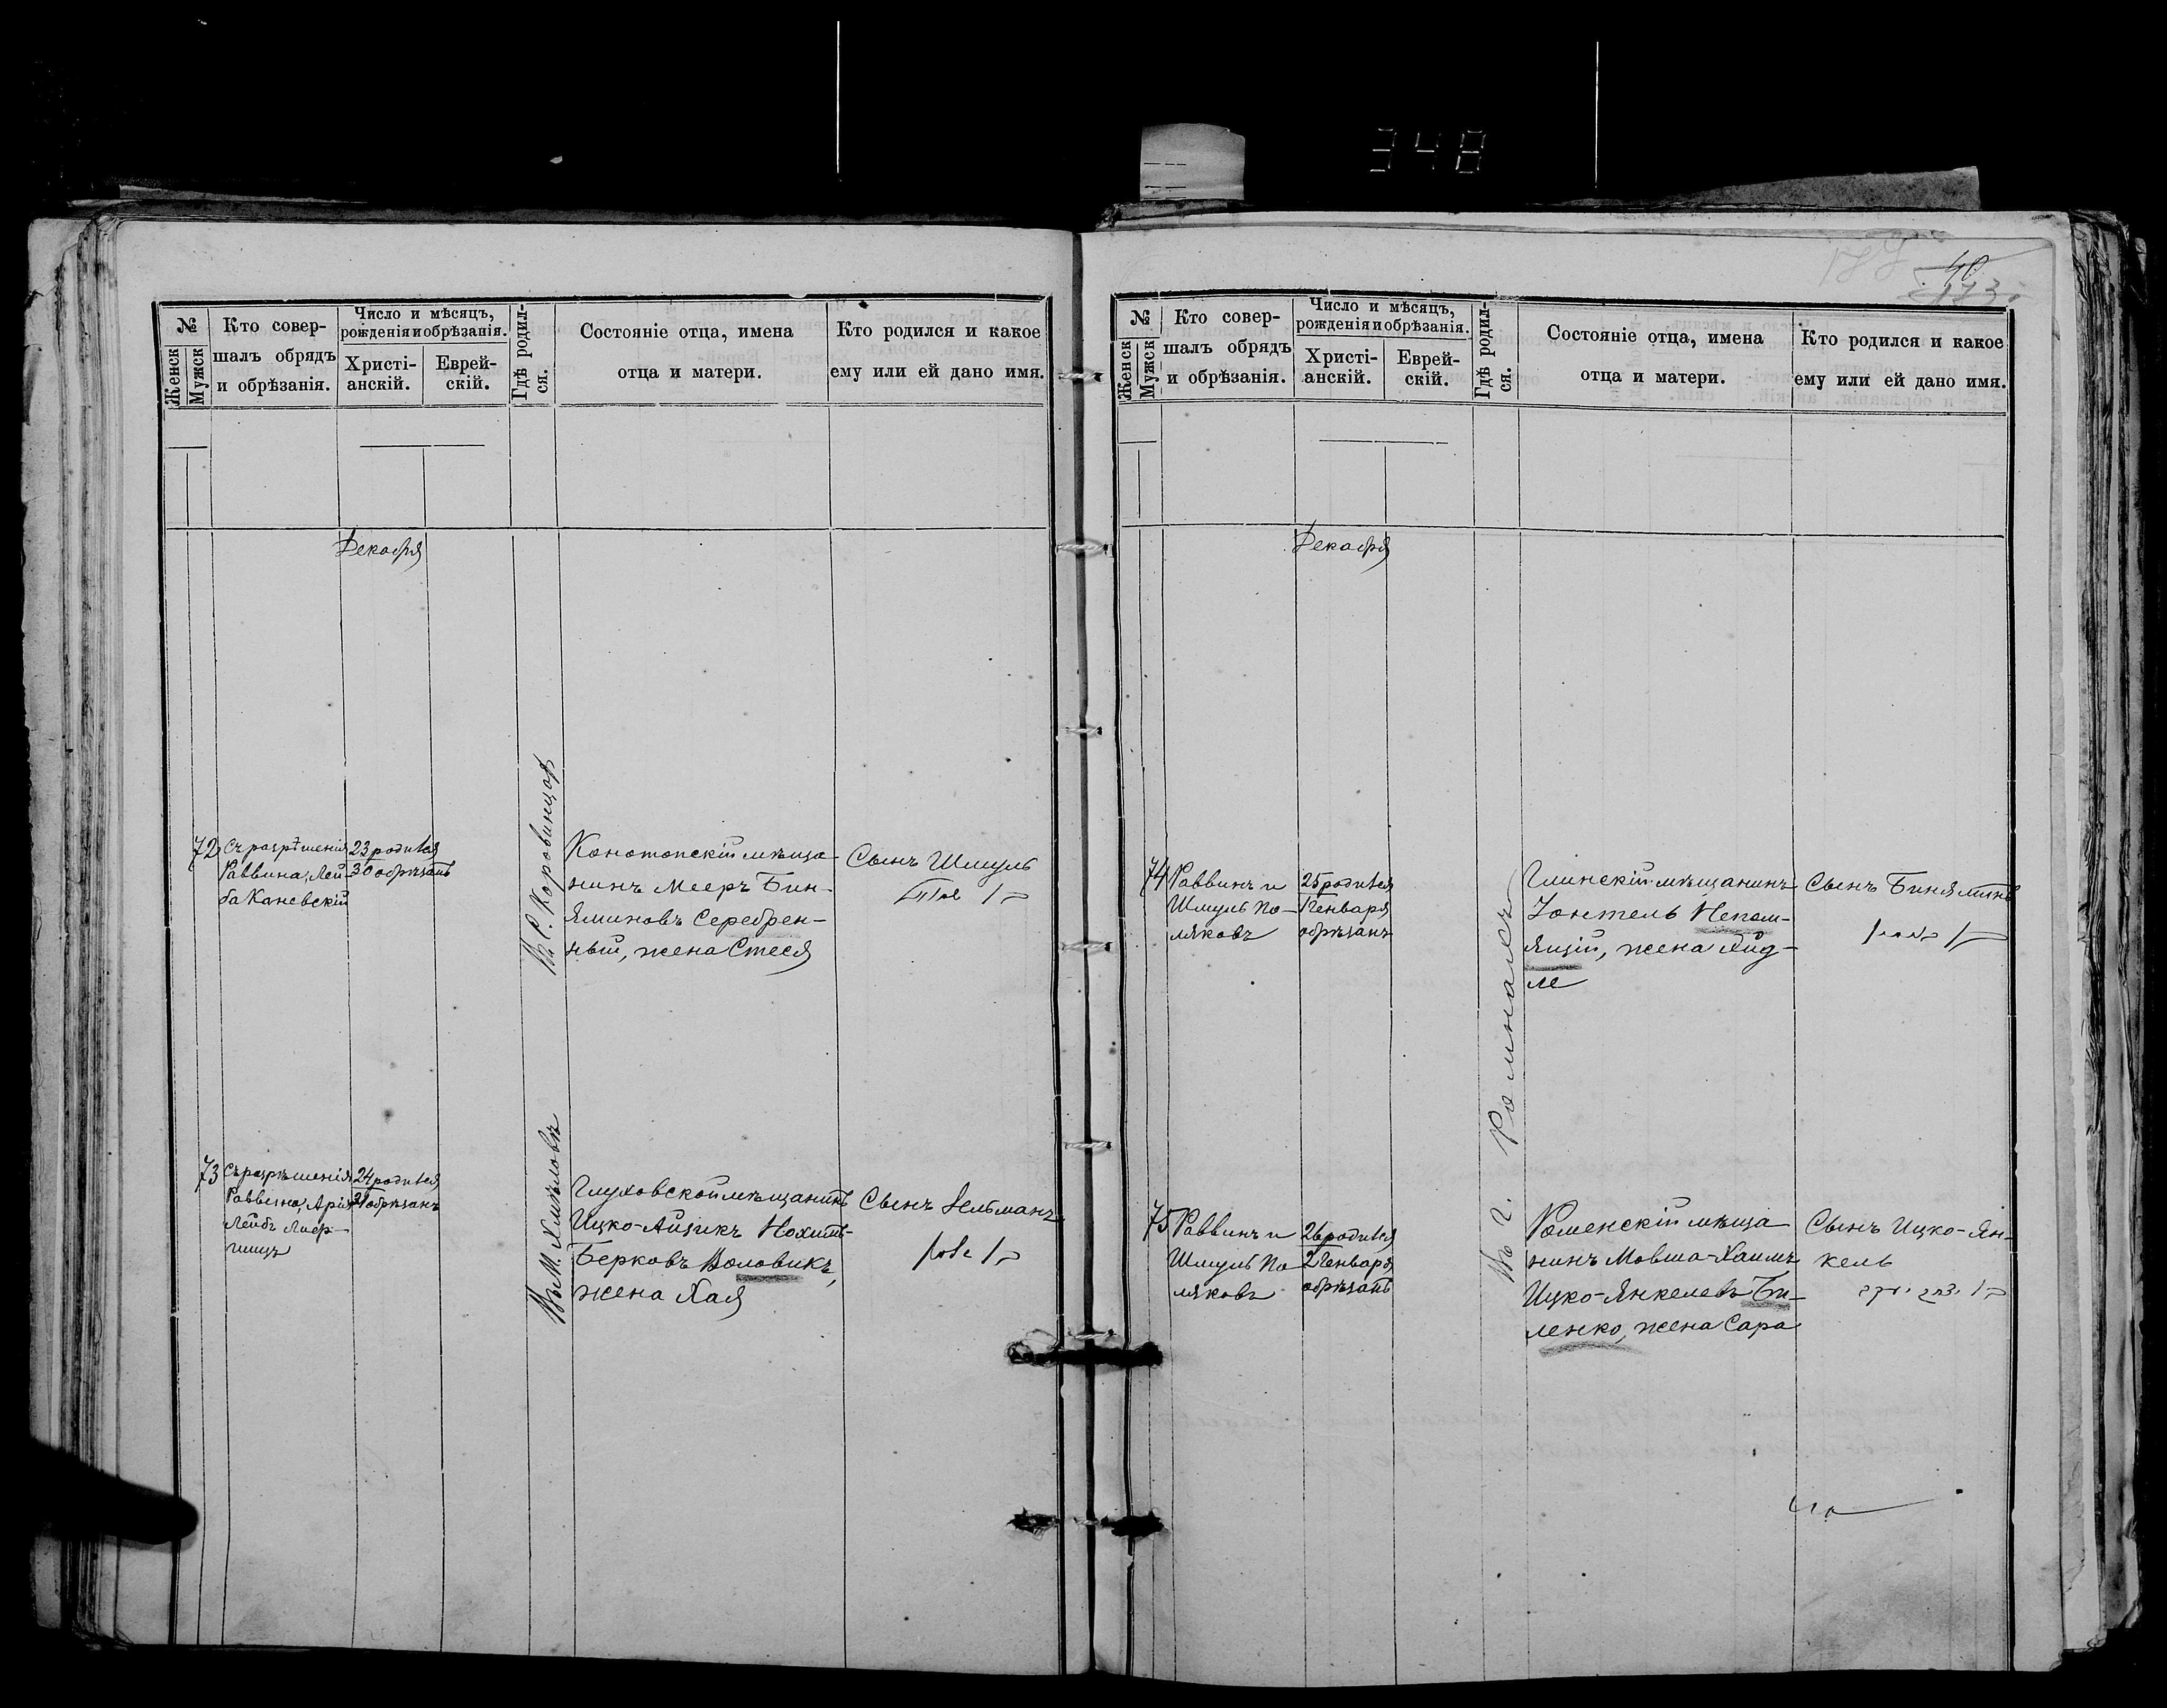 348
№
Женск
Мужск
Кто совер-
шалъ обрядъ
и обрѣзанія.
Число и мѣсяцъ,
рожденія и обрѣзанія.
Христі-
анскій.
Еврей-
скій.
Гдѣ родил-
ся.
Состояніе отца, имена
отца и матери.
Кто родился и какое
ему или ей дано имя.
Декабря
72
Съ разрѣшенія
Раввина, Лей-
ба Каневскій
23 родился
30 обрѣзанъ
Въ С. Коровинцах
Конотопскій мѣща-
нинъ Мееръ Бин-
яминовъ Серебрен-
ный, жена Стеся
Сынъ Шмуль
בן שמואל
73
Съ разрѣшенія
Раввина, Арія
Лейбъ
24 родился
31 обрѣзанъ
Въ М. Хмѣловѣ
Глуховской мѣщанинъ
Ицко-Айзикъ Нохимъ-
Берковъ Воловикъ,
жена Хая
Сынъ Зельманъ
בן זלמן
40
№
Женск
Мужск
Кто совер-
шалъ обрядъ
и обрѣзанія.
Число и мѣсяцъ,
рожденія и обрѣзанія.
Христі-
анскій.
Еврей-
скій.
Гдѣ родил-
ся.
Состояніе отца, имена
отца и матери.
Кто родился и какое
ему или ей дано имя.
Декабря
74
Раввинъ и
Шмуль По-
ляковъ
25 родился
1 Генваря
обрѣзанъ
Въ г. Ромнахъ
Глинскій мѣщанинъ
Зонтель Непом-
ящій, жена Айд-
ле
Сынъ Биняминъ
בן בנימין
75
Раввинъ и
Шмуль По-
ляковъ
26 родился
2 Генваря
обрѣзанъ
Роменскій мѣща-
нинъ Мовша-Хаимъ
Ицко-Янкелевъ Би-
ленко, жена Сара
Сынъ Ицко-Ян-
кель
בן יצחק יעקב